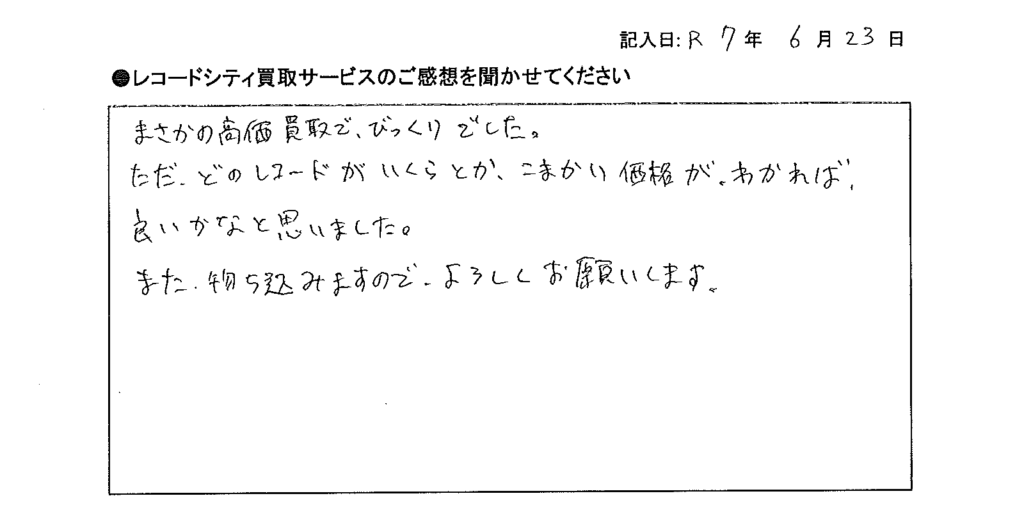 記入日: R 7年 6月23日
●レコードシティ買取サービスのご感想を聞かせてください
まさかの高価買取で、びっくりでした。
ただ、どのレコードがいくらとか、こまかい価格が、わかれば、
良いかなと思いました。
また、持ち込みますので、よろしくお願いします。